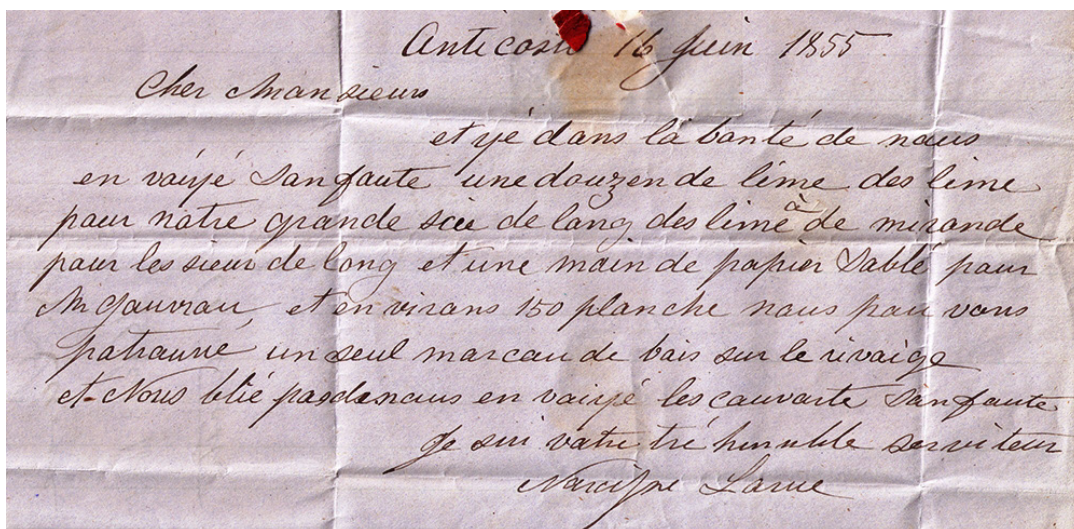 Anticosti 16 Juin 1855
Cher Monsieur
et yé dans la bonté de nous
en voiyé San faute une douzen de lime des lime
pour notre grande siée de long des lime à de mironde
pour les sieur de long et une main de papier Sablé pour
Mr Gauvrau et en virons 150 planche nous pou vons
patrouvé un seul morcau de bois sur le rivaige
et Nous blié pas de nous en voiyé les couvarte San faute
Je sui votre tré humble serviteur
Narcisse Larue